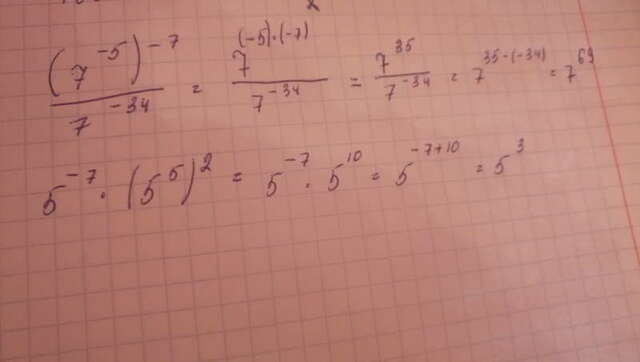 (7^-5)^-7 / 7^-34 = 7^(-5)·(-7) / 7^-34 = 7^35 / 7^-34 = 7^35-(-34) = 7^69
5^-7 · (5^5)^2 = 5^-7 · 5^10 = 5^-7+10 = 5^3